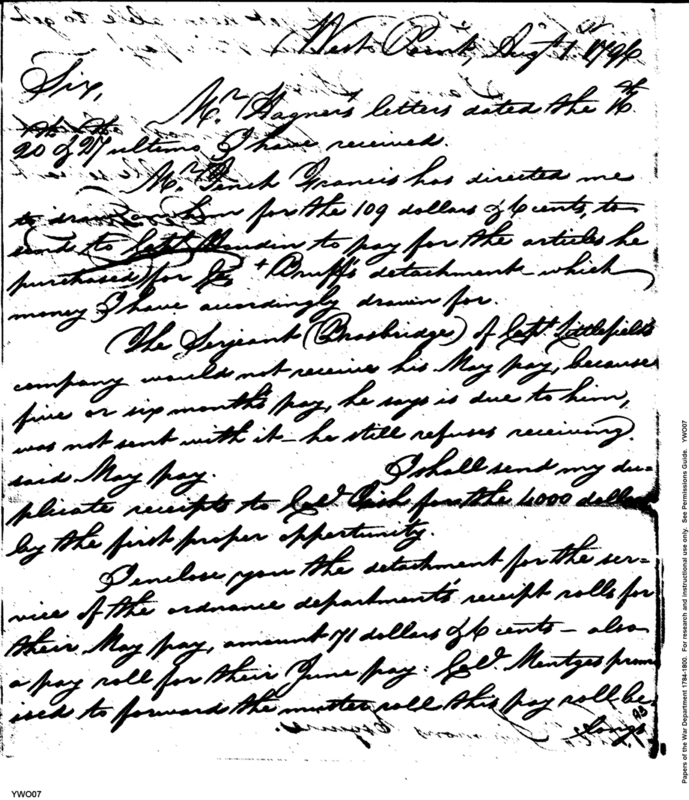 West Point, Augt 1st 1796
Sir,
Mr Hagner's letters dated the 16th
20th & 27th ultimo I have received.
Mr Tench Francis has directed me
to draw on him for the 109 dollars & 6 cents, to
send to Captn to pay for the articles he
purchased for Lt Cruff's detachment which
money I have accordingly drawn for.
The Serjeant (Brasbridge) of Capt Littlefield's
company would not receive his May pay, because
five or six months pay, he says is due to him,
was not sent with it – he still refuses receiving
said May pay. I shall send my du=
plicate receipts to Col. for the 4000 dollars
by the first proper opportunity.
I enclose you the detachment for the ser=
vice of the ordnance department's receipt rolls for
their May pay, amount 71 dollars & 6 cents – also
a pay roll for their June pay: Col. Mentges prom
ised to forward the muster roll this pay roll be
longs
YWO07
Papers of the War Department 1784-1800. For research and instructional use only. See Permissions Guide. YWO07